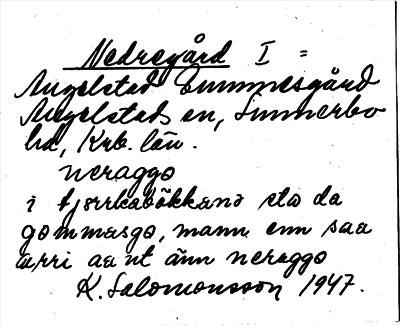 Nedregård I =
Angelstad Gummesgård
Angelstads sn, Sunnerbo
hd, Krb. län.
neraggo
i kjörrkebökkano sto da
gommasgo, mann enn saa
arri aa nt änn neraggo
K. Salomonsson 1947.